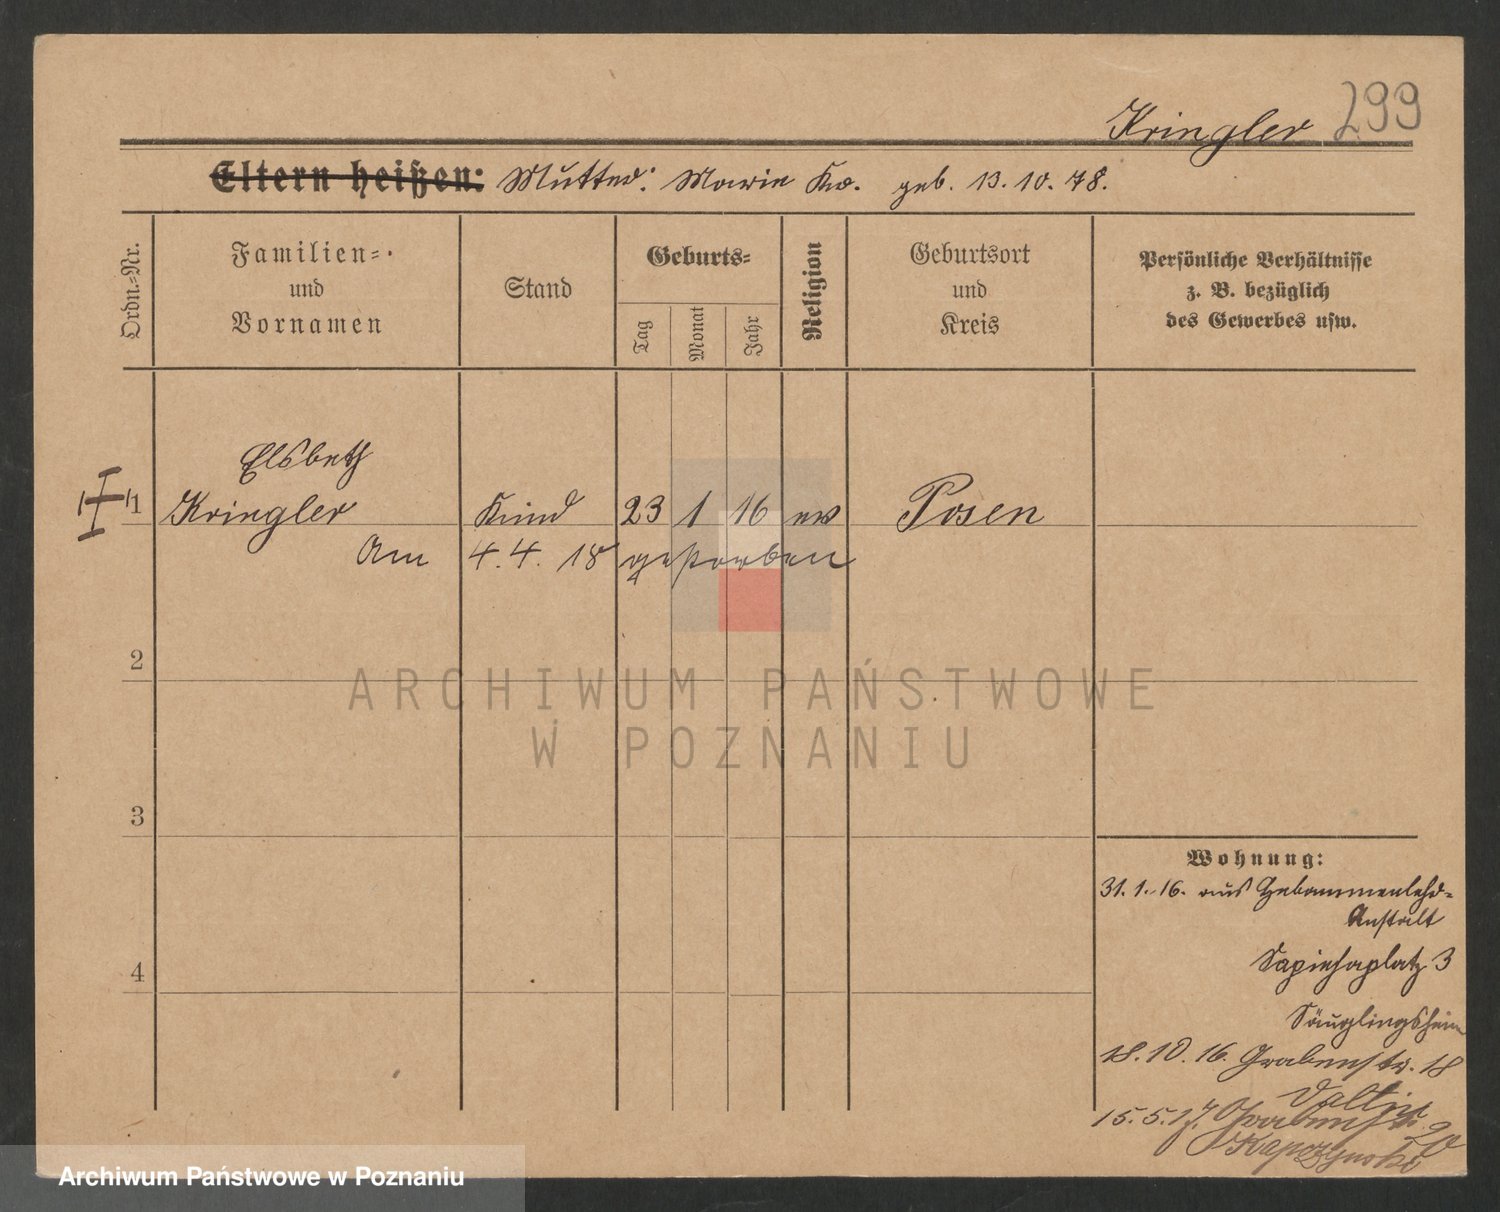 Kringler 299
Eltern heißen: Mutter: Marie Kr. geb. 13. 10. 78.
Ordn.=Nr.
Familien=
und
Vornamen
Stand
Geburts=
Tag
Monat
Jahr
Religion
Geburtsort
und
Kreis
Persönliche Verhältnisse
z. B. bezüglich
des Gewerbes usw.
Elsbeth
1 Kringler Kind 23 1 16 ev Posen
Am 4. 4. 18 gestorben
2
ARCHIWUM PAŃSTWOWE
W POZNANIU
3
4
Wohnung:
31. 1. 16. aus Hebammenlehr=
Anstalt
Sapiehaplatz 3
Säuglingsheim
18. 10. 16. Grabenstr. 18
15. 5. 17. Grabenstr. 20
Archiwum Państwowe w Poznaniu